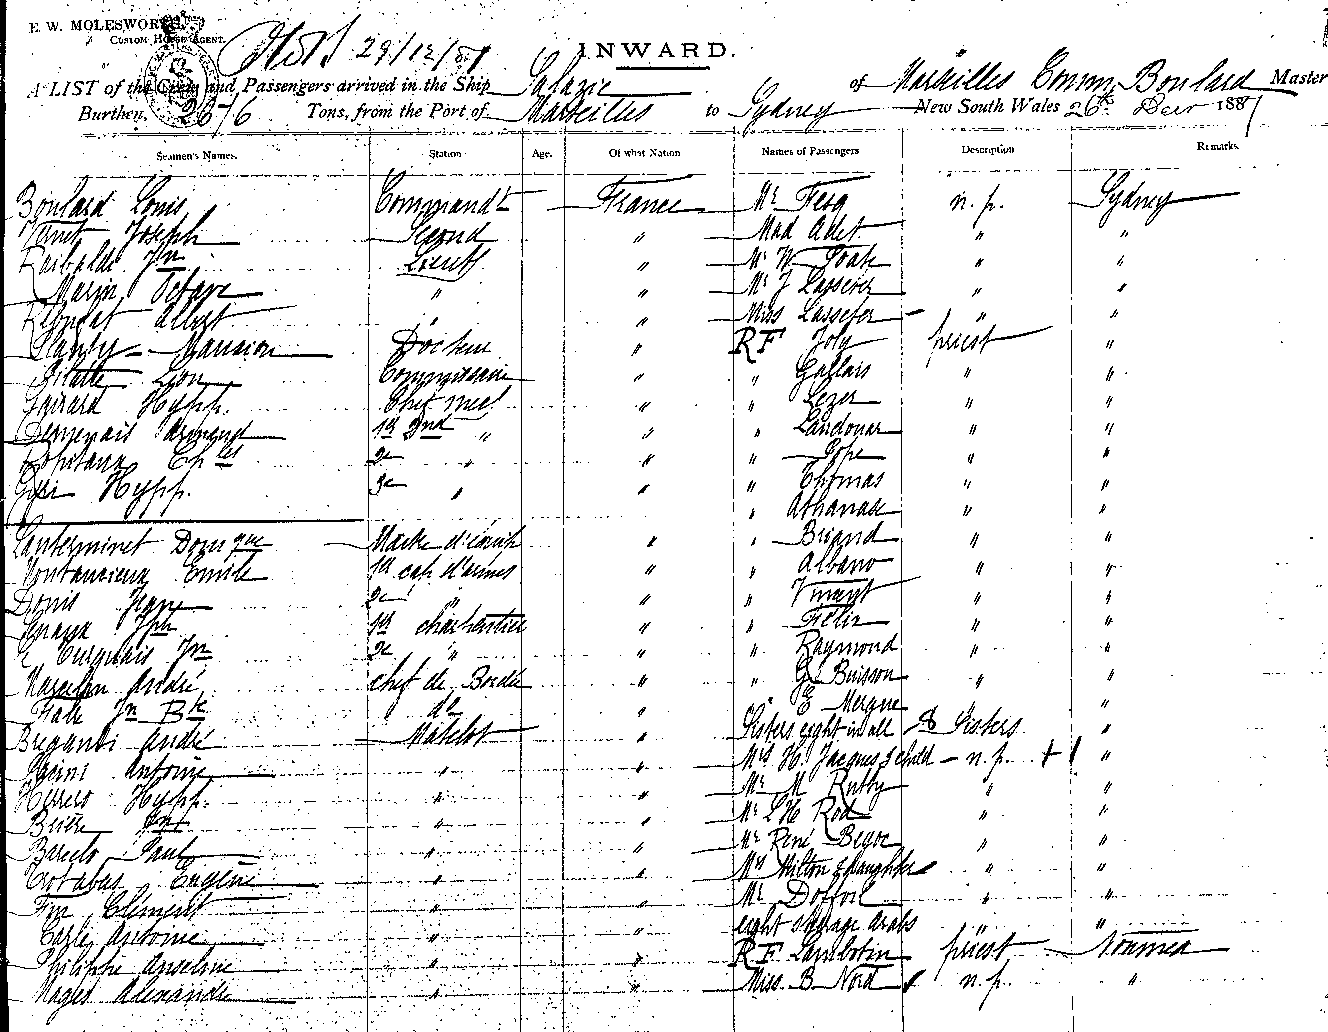 E. W. MOLESWORTH,
CUSTOM HOUSE AGENT.
29/12/87
INWARD.
A LIST of the Crew and Passengers arrived in the Ship Salazie of Marseilles Comm. Boulard Master
Burthen, 2676 Tons, from the Port of Marseilles to Sydney New South Wales 26th Decr 1887
Seamen's Names. Station Age. Of what Nation Names of Passengers Description Remarks.
Boulard Louis Commandt France Mr Fesq n.p. Sydney
Joseph Second " Mad Adet " "
Raibaldi Jn Lieutt " Mr W " "
Marin Octave " " Mr J Lasseter " "
Albert " " Miss Lasseter " "
Mansion Docteur " RF Joly priest "
Léon Commissaire " " Gallais " "
Gairard Hypp. Chef mecl " " Lezer " "
Armand 1er 2nd " " " Landouar " "
Chles 2e " " " Pope " "
Hypp. 3e " " " Thomas " "
Athanase " "
Lanterminet Domque Maitre d'équip " " Briand " "
Emile 1er cap. d'armes " " Albano " "
Donis 2e " " " Vincent " "
Jph 1er charpentier " " Félix " "
Jn 2e " " " Raymond " "
Marcelin André chef de Bordée " " G. Buisson " "
Jn Bte do " E Mergue "
Breganti André Matelot " Sisters eight in all 8 Sisters "
Antoine " " Mrs H. Jacques & child n.p. + 1 "
Herrero Hypp. " " Mr M Rubby " "
Brière " " Mr L H Rod " "
Barielo Paul " " Mr René Begoe " "
Trotabas Eugène " " Mrs Milton & Daughter " "
Clément " " Mr Doffoil " "
Carle Antoine " " eight steerage Arabs " "
Philippe Anselme " " RF Lambotin priest Noumea
Magis Alexandre " " Miss B Nord n.p. "